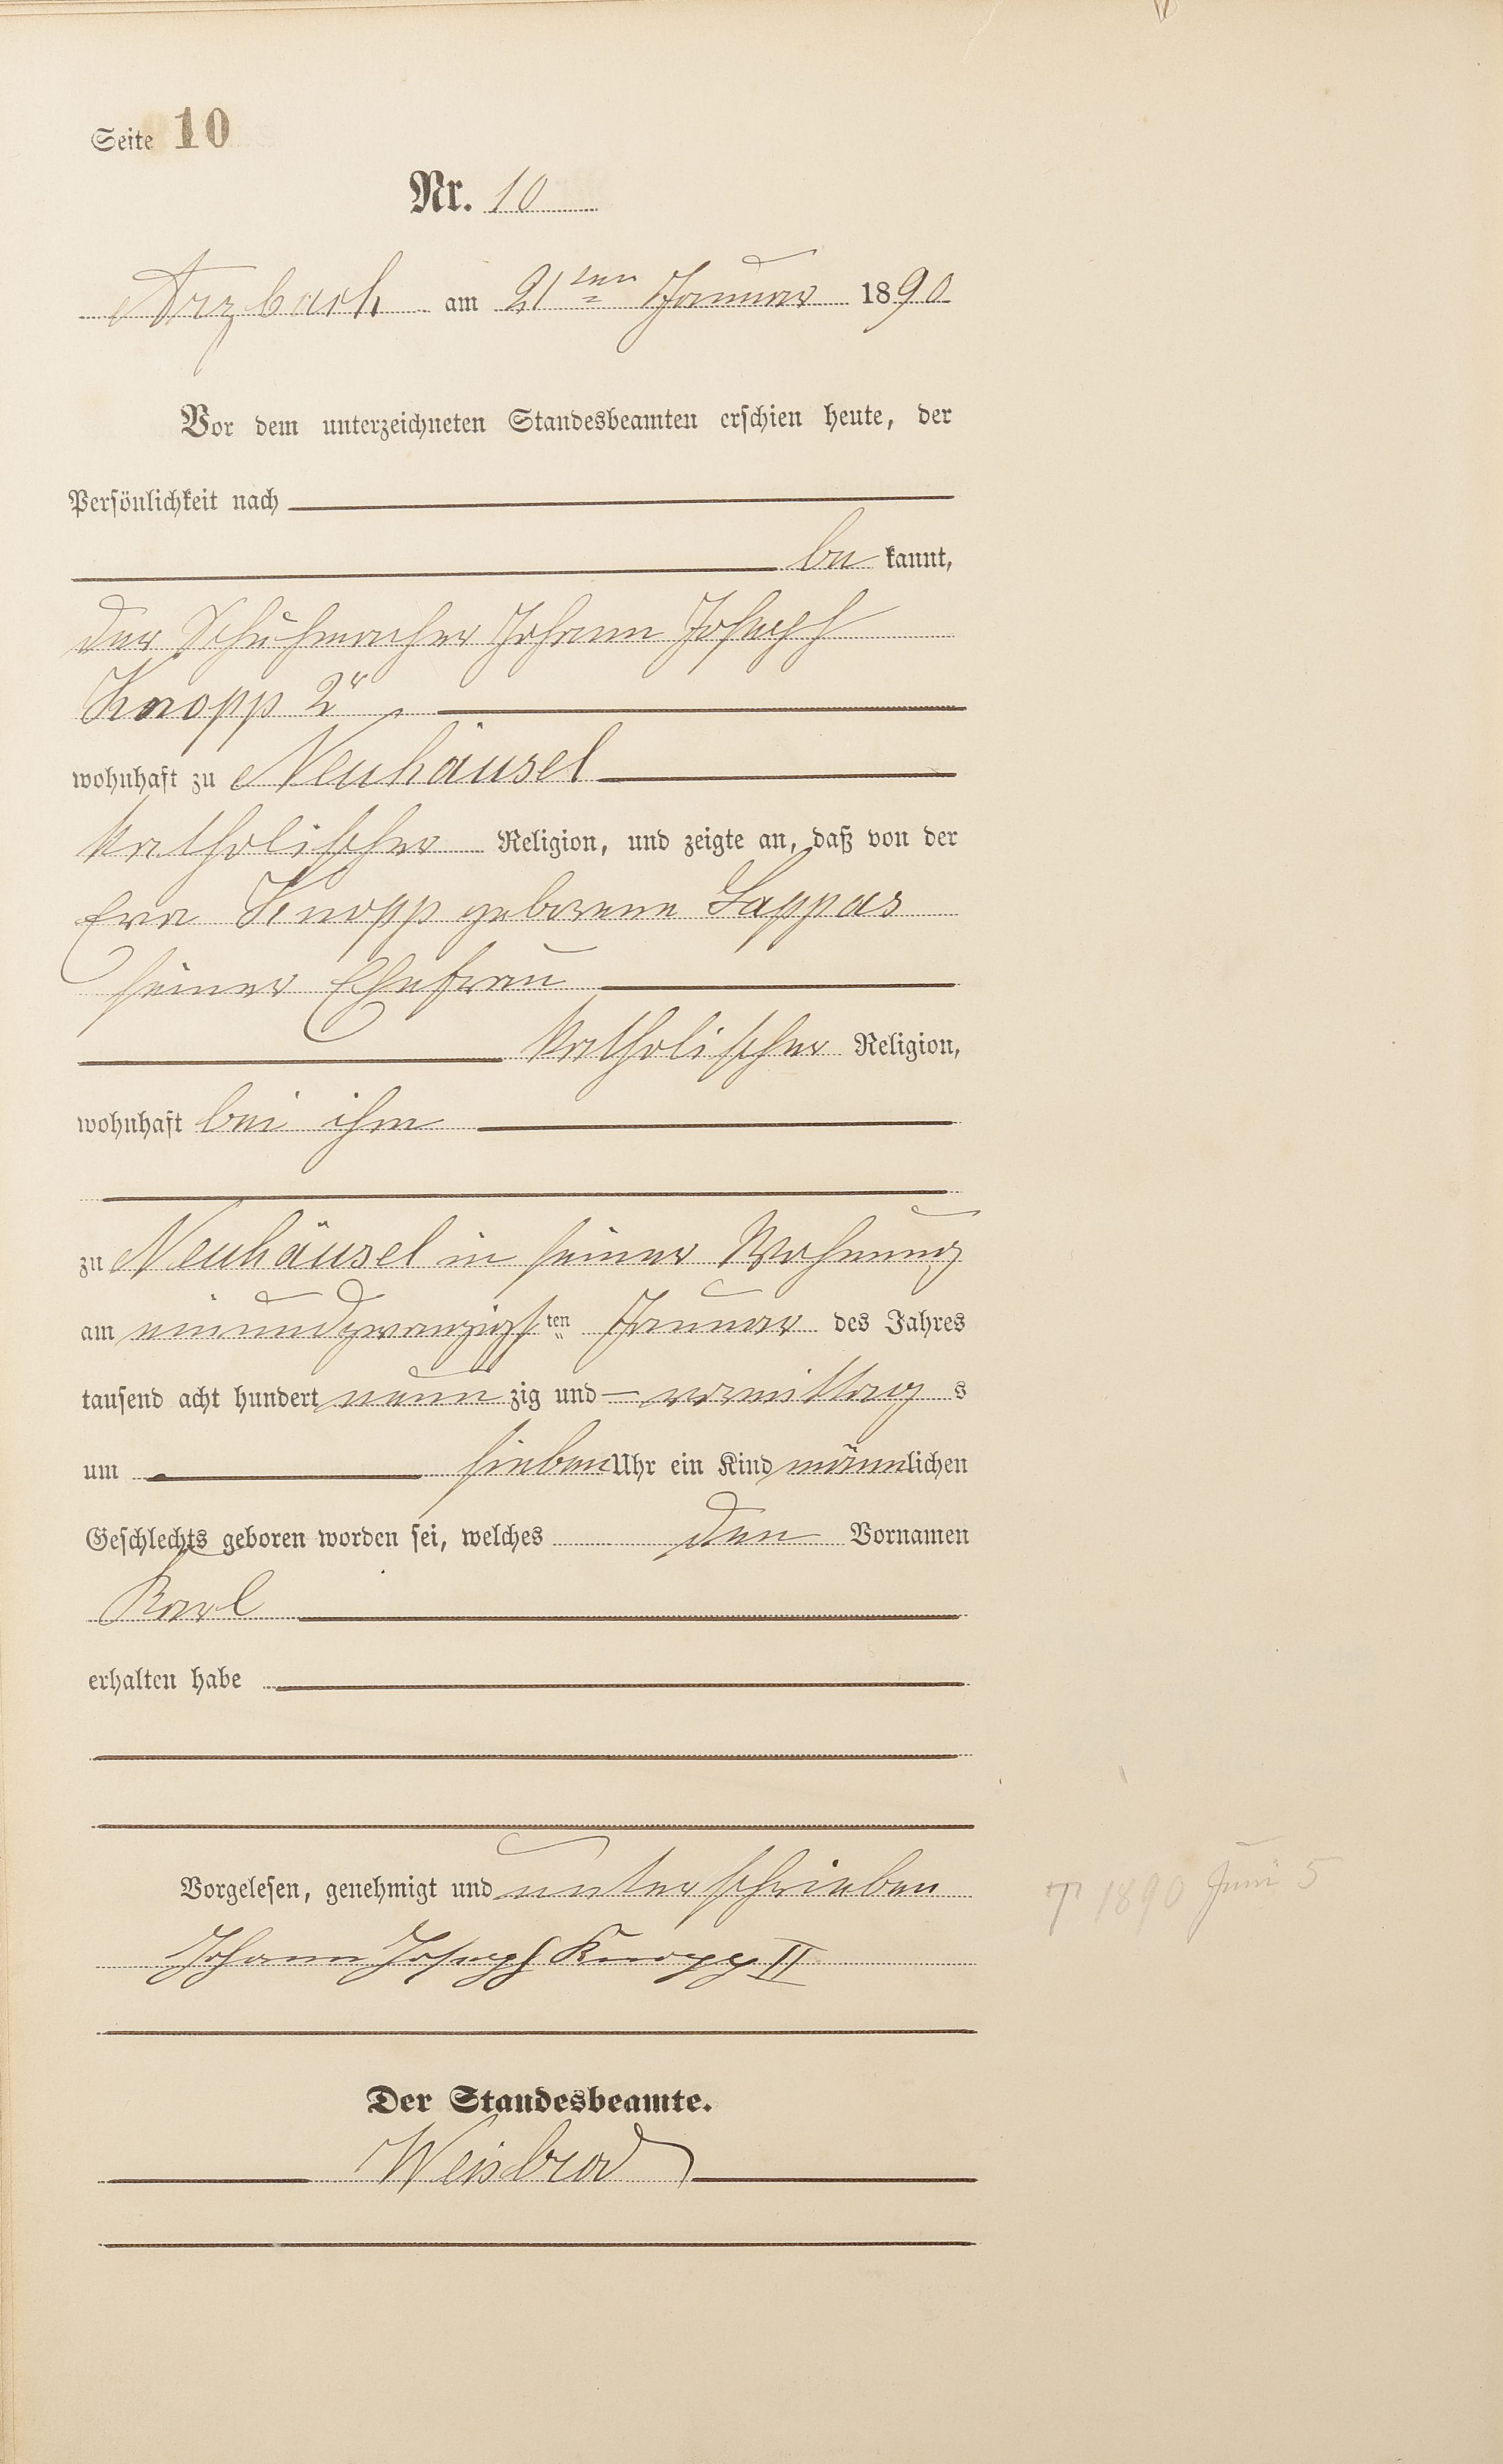 Seite 10
Nr. 10
Arzbach am 21ten Januar 1890
Vor dem unterzeichneten Standesbeamten erschien heute, der
Persönlichkeit nach
be kannt,
der Schuhmacher Johann Joseph
Knopp 2r
wohnhaft zu Neuhäusel
katholischer Religion, und zeigte an, daß von der
Eva Knopp geborene Lappas
seiner Ehefrau
katholischer Religion,
wohnhaft bei ihm
zu Neuhäusel in seiner Wohnung
am einundzwanzigsten Januar des Jahres
tausend acht hundert neun zig und – vormittag s
um sieben Uhr ein Kind männlichen
Geschlechts geboren worden sei, welches den Vornamen
Karl
erhalten habe
Vorgelesen, genehmigt und unterschrieben
Johann Joseph Knopp II
† 1890 Juni 5
Der Standesbeamte.
Weisbrod